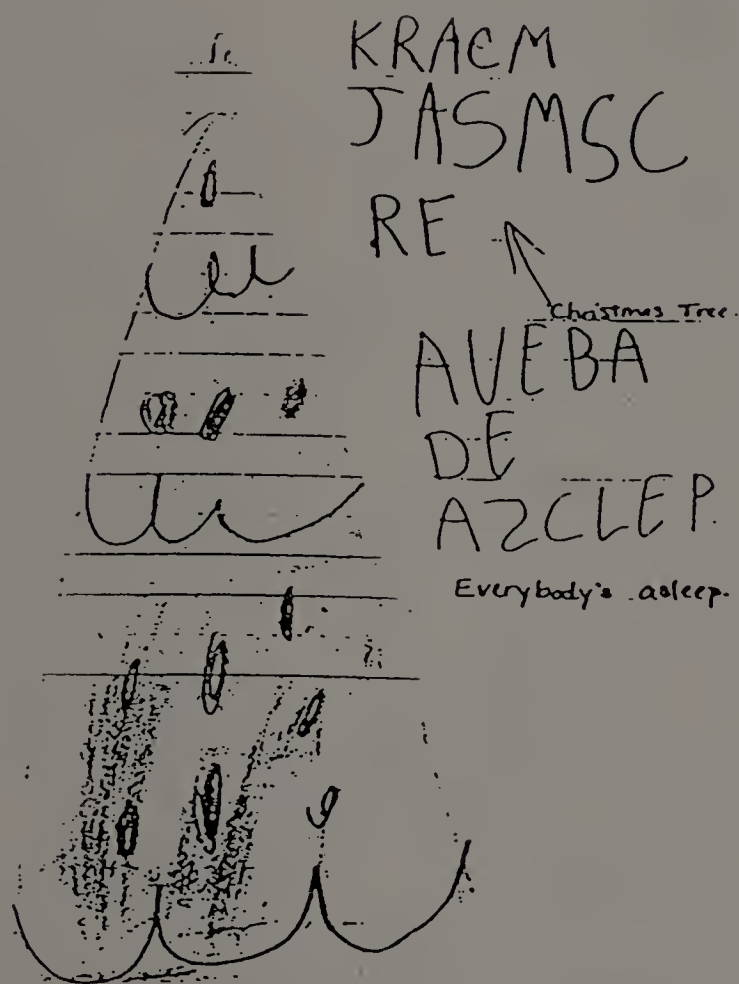 KRAEM
JASMSC
RE
Christmas Tree.
AVEBA
DE
AZCLEP.
Everybody's asleep.